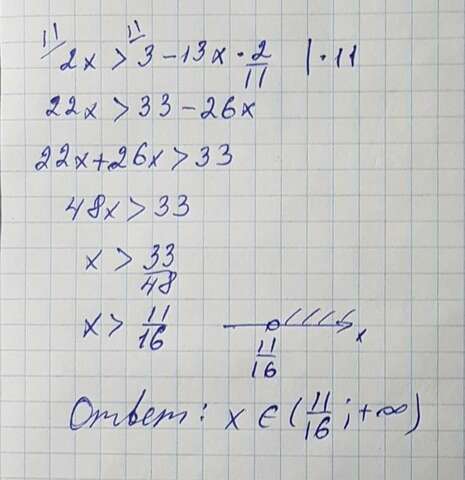 11/ 2x > 11/ 3 - 13x · 2/11 | · 11
22x > 33 - 26x
22x + 26x > 33
48x > 33
x > 33/48
x > 11/16
11/16 x
Ответ: x ∈ (11/16; +∞)